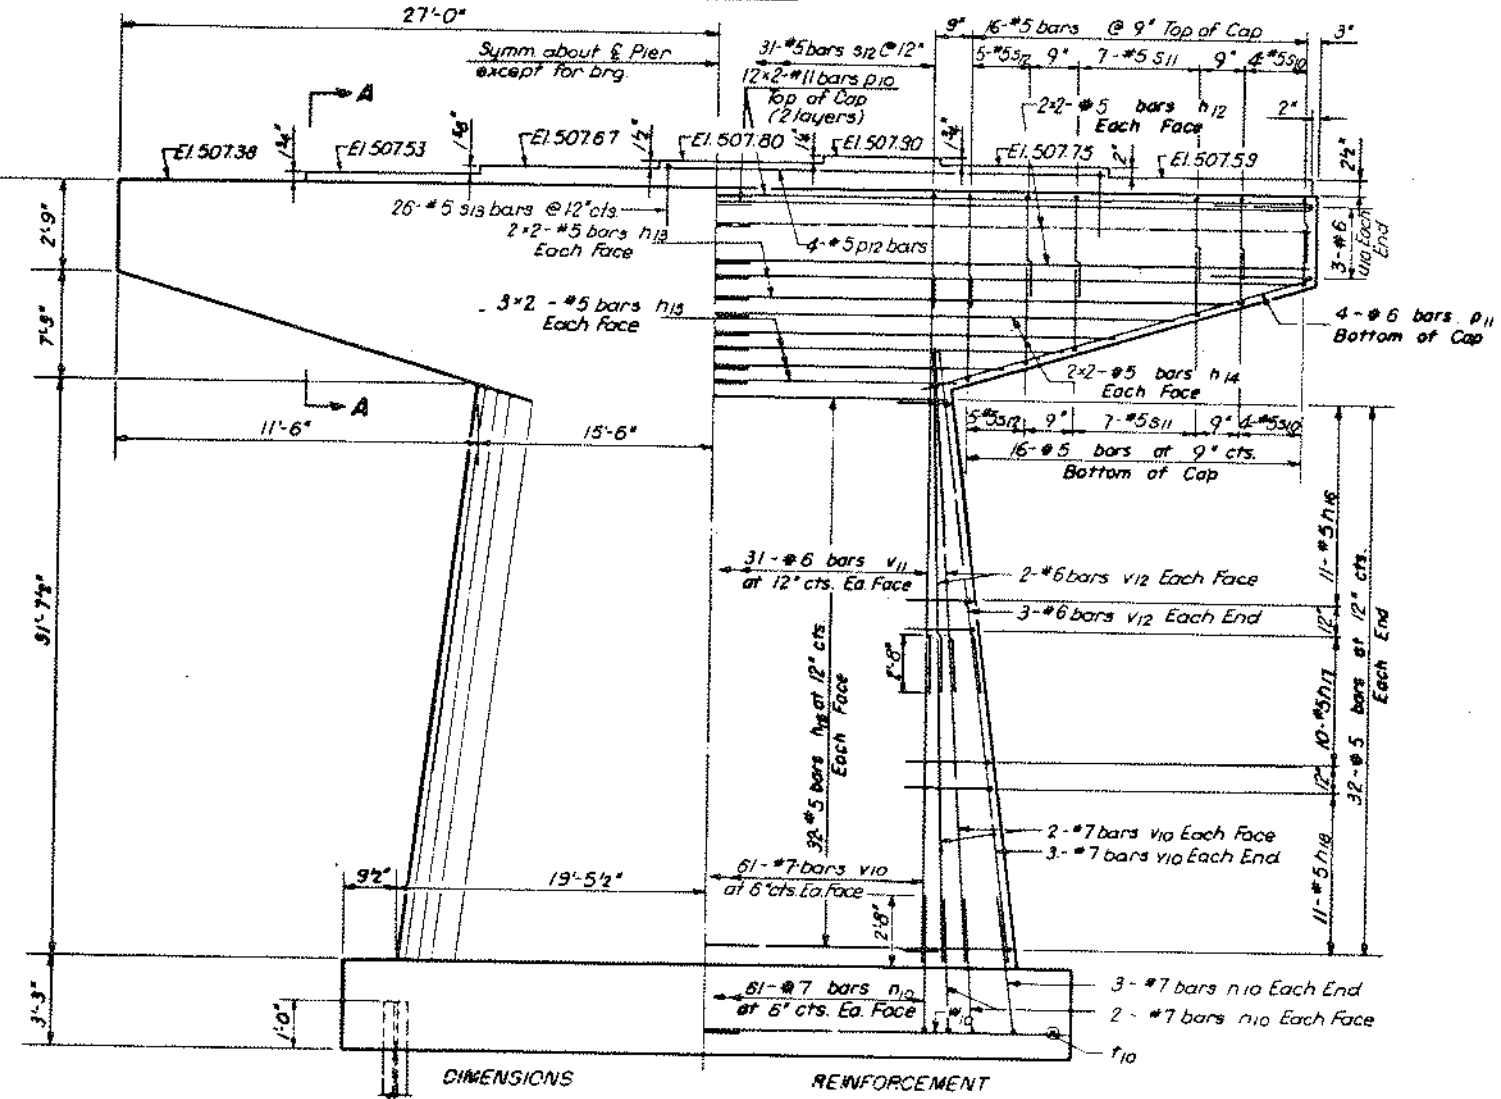 27'-0"
Symm. about ℄ Pier
except for brg.
31-#5 bars s12 @ 12"
9"
16-#5 bars @ 9" Top of Cap
3"
5-#5 s12
9"
7-#5 s11
9"
4-#5 s10
12x2-#11 bars p10
Top of Cap
(2 layers)
2x2-#5 bars h12
Each Face
2"
A
El. 507.38
El. 507.53
El. 507.67
1½"
El. 507.80
El. 507.90
El. 507.75
2"
El. 507.59
2½"
2'-9"
26-#5 s13 bars @ 12" cts.
2x2-#5 bars h13
Each Face
4-#5 p12 bars
3-#6
u10 Each
End
3x2-#5 bars h15
Each Face
4-#6 bars p11
Bottom of Cap
2x2-#5 bars h14
Each Face
A
11'-6"
15'-6"
5-#5 s12
9"
7-#5 s11
9"
4-#5 s10
16-#5 bars at 9" cts.
Bottom of Cap
31'-7½"
31-#6 bars v11
at 12" cts. Ea. Face
2-#6 bars v12 Each Face
3-#6 bars v12 Each End
11-#5 h16
12"
10-#5 h17
12"
11-#5 h18
32-#5 bars at 12" cts.
Each End
32-#5 bars at 12" cts.
Each Face
2-#7 bars v10 Each Face
3-#7 bars v10 Each End
61-#7 bars v10
at 6" cts. Ea. Face
9½"
19'-5½"
2'-8"
3'-3"
1'-0"
61-#7 bars n10
at 6" cts. Ea. Face
3-#7 bars n10 Each End
2-#7 bars n10 Each Face
t10
DIMENSIONS
REINFORCEMENT